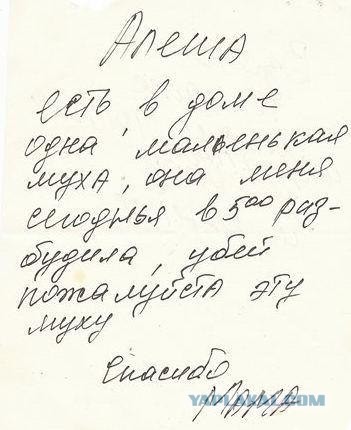 Алеша
есть в доме
одна маленькая
муха, она меня
сегодня в 5⁰⁰ раз-
будила, убей
пожалуйста эту
муху
Спасибо
Мама
YAPLAKAL.COM